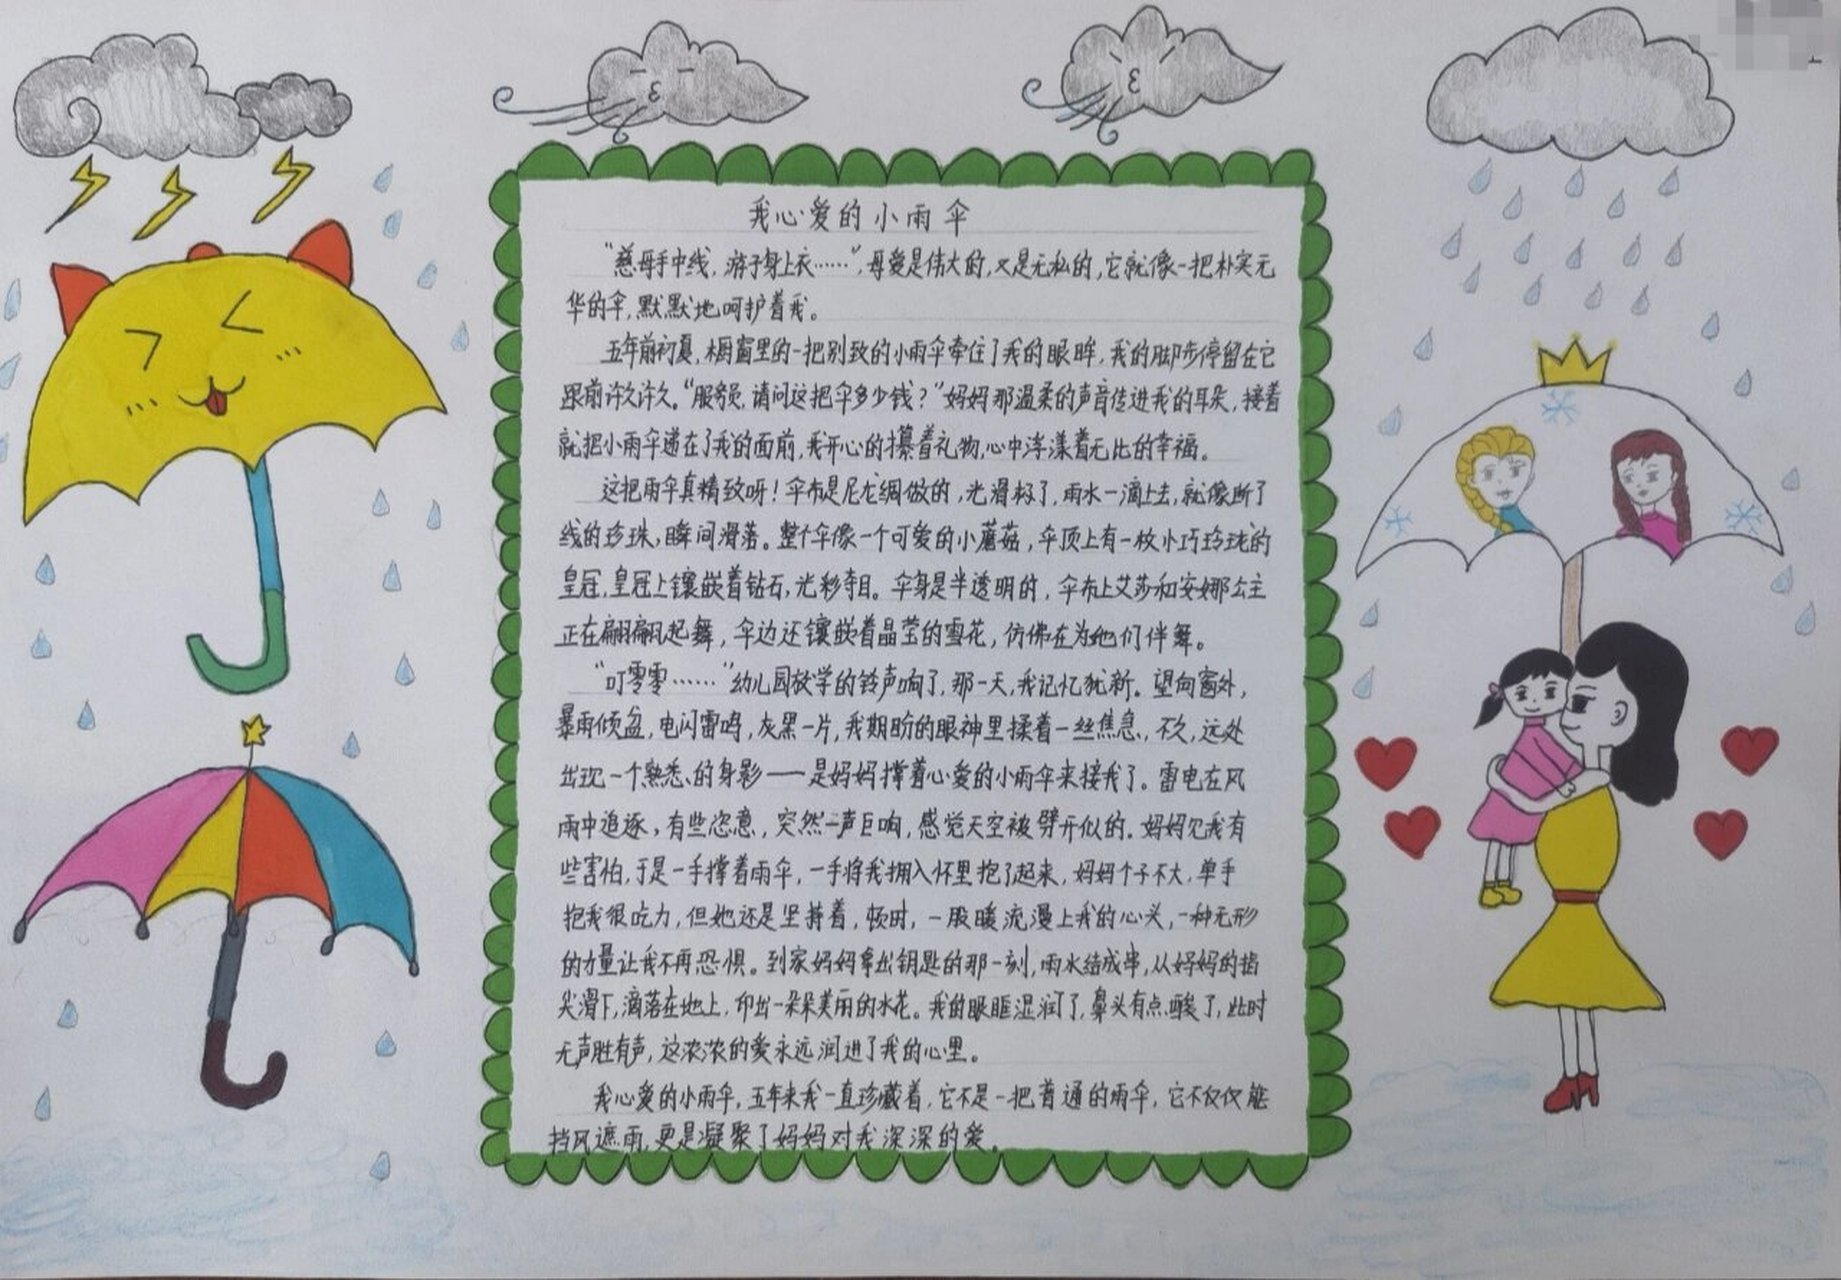 我心爱的小雨伞
“慈母手中线，游子身上衣……”，母爱是伟大的，又是无私的，它就像一把朴实无
华的伞，默默地呵护着我。
五年前初夏，橱窗里的一把别致的小雨伞牵住了我的眼眸，我的脚步停留在它
跟前许久许久。“服务员，请问这把伞多少钱？”妈妈那温柔的声音传进我的耳朵，接着
就把小雨伞递在了我的面前，我开心的攥着礼物，心中浮漾着无比的幸福。
这把雨伞真精致呀！伞布是尼龙绸做的，光滑极了，雨水一滴上去，就像断了
线的珍珠，瞬间滑落。整个伞像一个可爱的小蘑菇，伞顶上有一枚小巧玲珑的
皇冠，皇冠上镶嵌着钻石，光彩夺目。伞身是半透明的，伞布上艾莎和安娜公主
正在翩翩起舞，伞边还镶嵌着晶莹的雪花，仿佛在为她们伴舞。
“叮零零……”幼儿园放学的铃声响了，那一天，我记忆犹新。望向窗外，
暴雨倾盆，电闪雷鸣，灰黑一片，我期盼的眼神里揉着一丝焦急，不久，远处
出现一个熟悉的身影——是妈妈撑着心爱的小雨伞来接我了。雷电在风
雨中追逐，有些恣意，突然一声巨响，感觉天空被劈开似的。妈妈见我有
些害怕，于是一手撑着雨伞，一手将我拥入怀里抱了起来，妈妈个子不大，单手
抱我很吃力，但她还是坚持着，顿时，一股暖流漫上我的心头，一种无形
的力量让我不再恐惧。到家妈妈拿出钥匙的那一刻，雨水结成串，从妈妈的指
尖滑下，滴落在地上，印出一朵朵美丽的水花。我的眼眶湿润了，鼻头有点酸了，此时
无声胜有声，这浓浓的爱永远润进了我的心里。
我心爱的小雨伞，五年来我一直珍藏着，它不是一把普通的雨伞，它不仅仅能
挡风遮雨，更是凝聚了妈妈对我深深的爱。